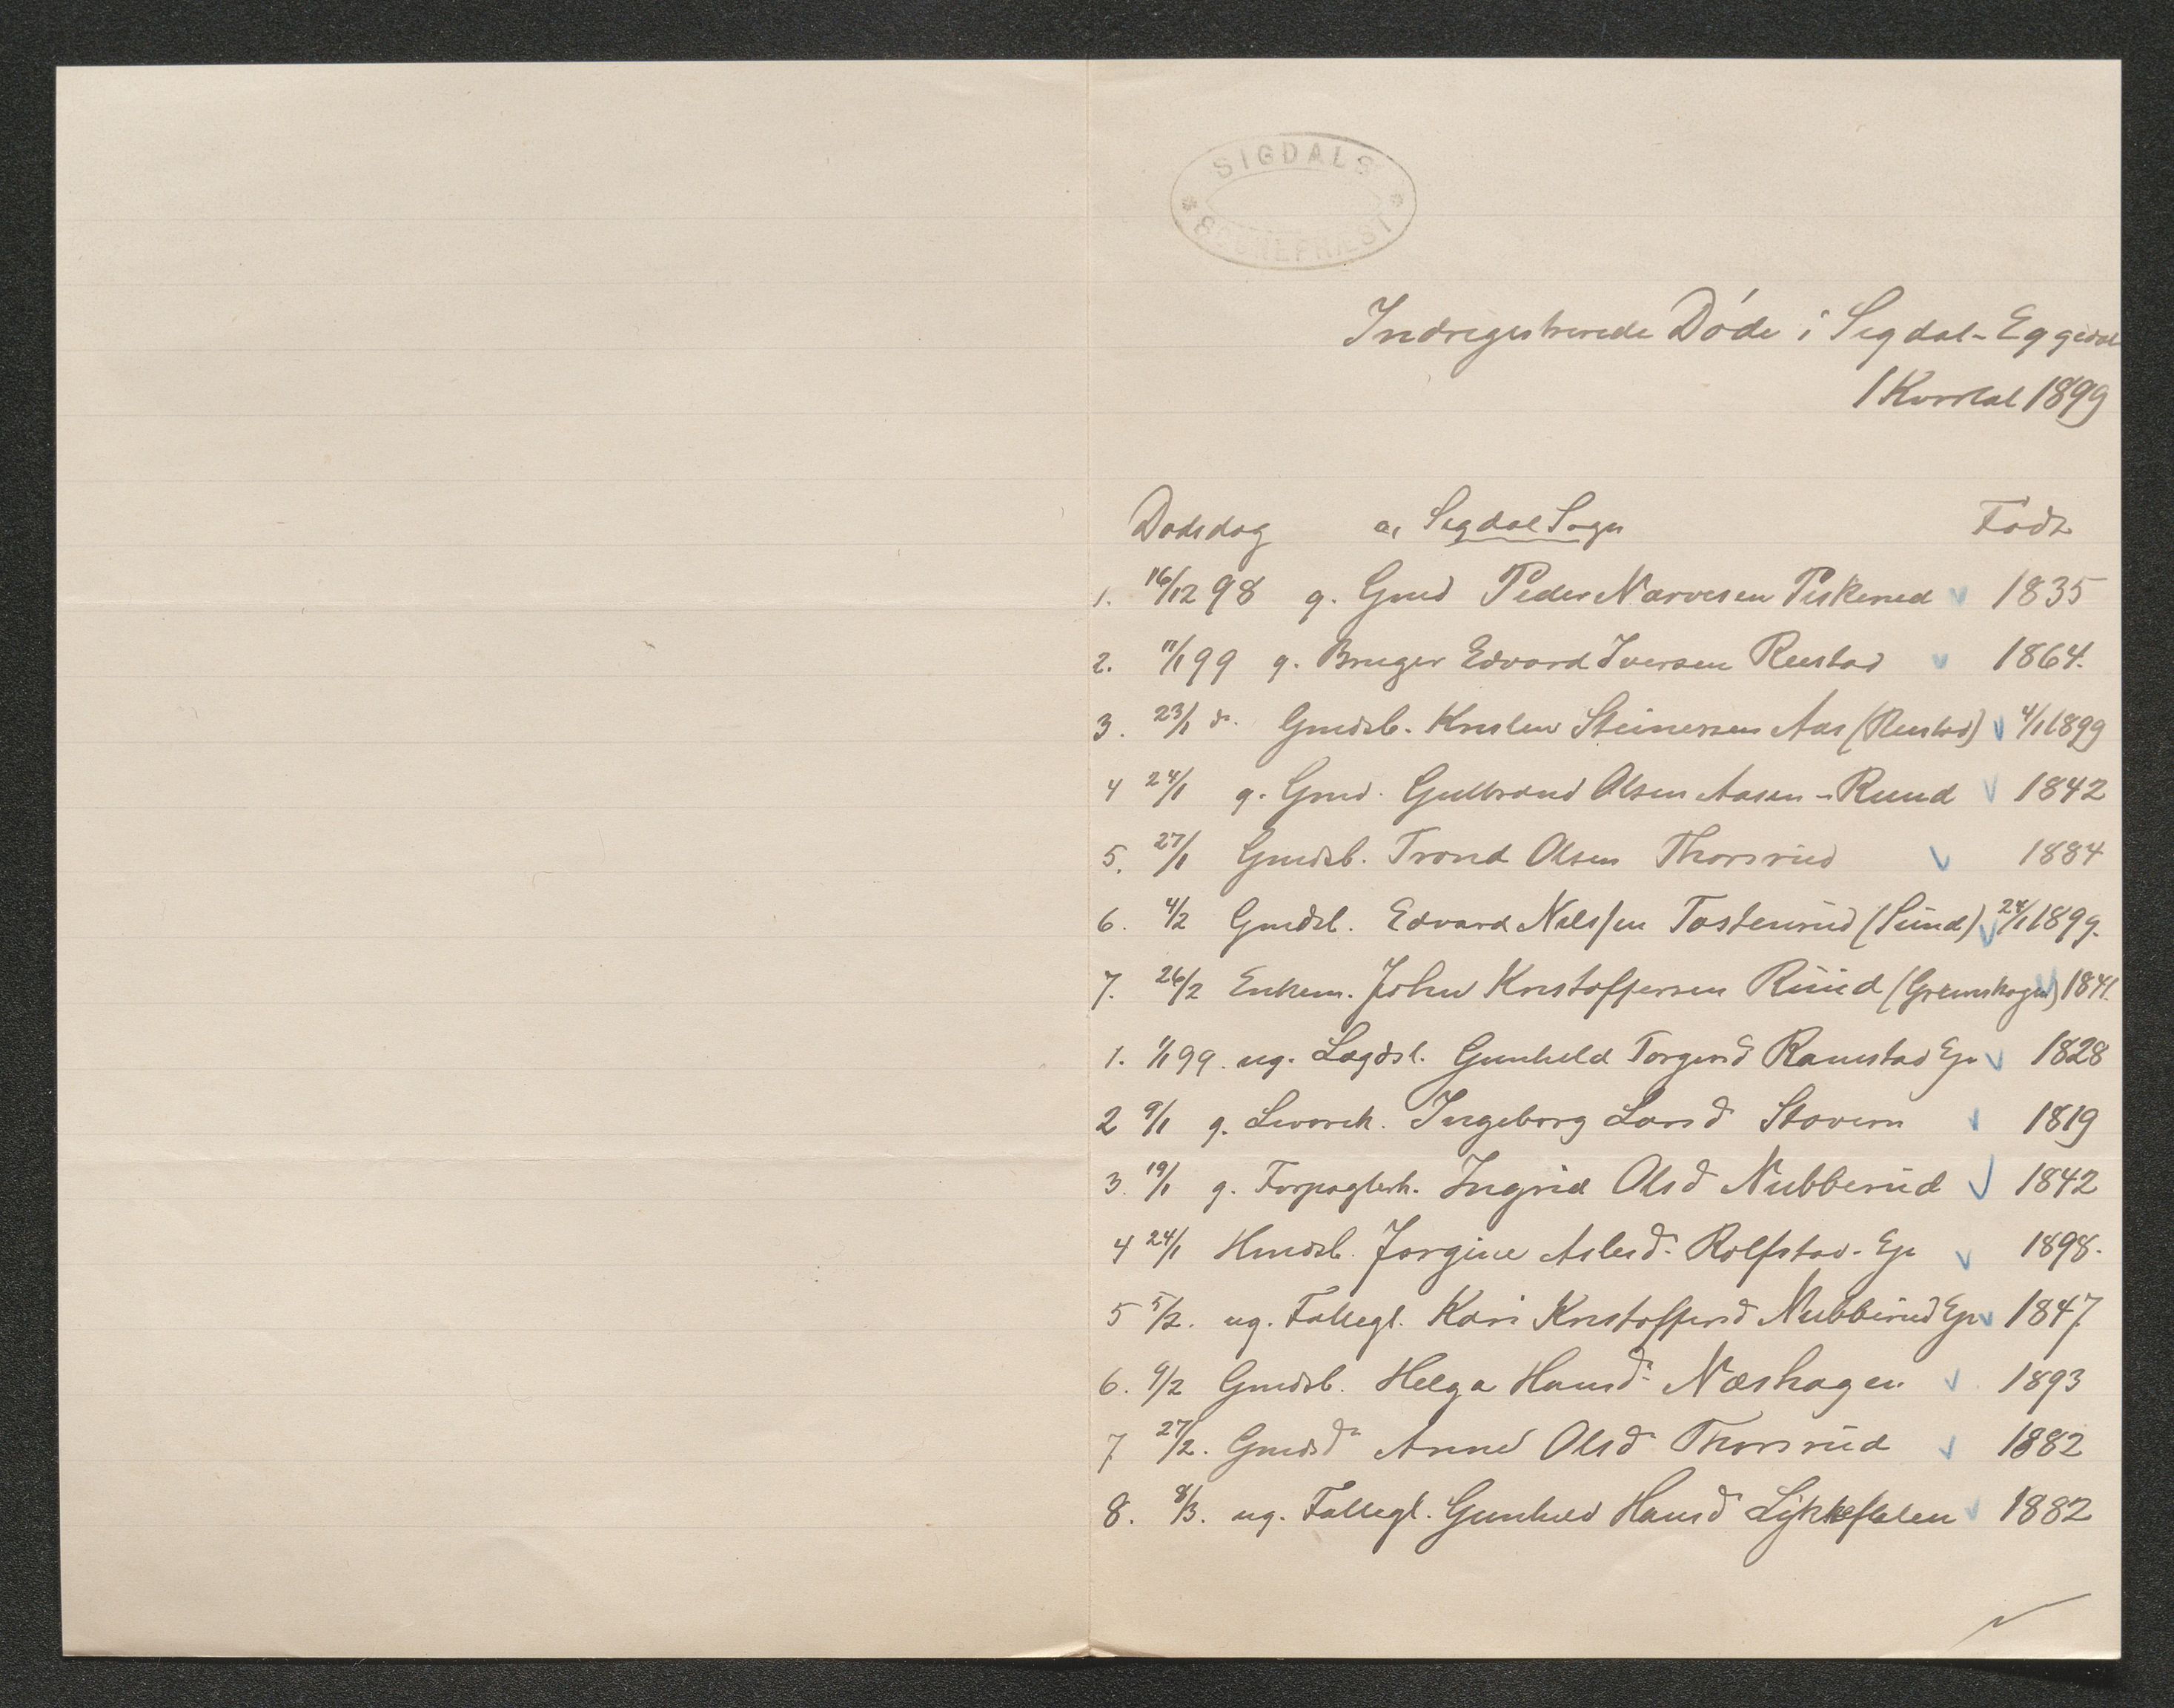 SIGDALS
SOGNEPRÆST
Indregistrerede Døde i Sigdal-Eggedal
1 Kvartal 1899
Dødsdag a, Sigdal Sogn Født
1. 16/12 98 g. Gmd Peder Narvesen Piskerud 1835
2. 11/1 99 g. Bruger Edvard Iversen Rustad 1864.
3. 23/1 do. Gmdsb. Kristen Steinersen Aas (Rustad) 4/1 1899
4 24/1 g. Gmd. Gulbrand Olsen Aasen-Ruud 1842
5. 27/1 Gmdsb. Trond Olsen Thorsrud 1884
6. 4/2 Gmdsb. Edvard Nilssen Tostenrud (Sund) 24/1 1899.
7. 26/2 Enkem. John Kristoffersen Ruud (Grønhagen) 1841.
1. 1/1 99. ug. Lægdsl. Gunhild Torgersd Ramstad Ej. 1828
2 9/1 g. Livørek. Ingeborg Larsd Stovern 1819
3. 19/1 g. Forpagterk. Ingrid Olsd Nubberud 1842
4 24/1 Hmdsb. Jørgine Aslesd. Rolfstad. Ej. 1898.
5 5/2. ug. Fattigl. Kari Kristoffersd Nubberud Ej. 1847
6. 9/2 Gmdsb. Helga Hansd. Næshagen 1893
7 27/2. Gmdsd Anne Olsd Thorsrud 1882
8. 8/3. ug. Fattigl. Gunhild Hansd Lykkeflaten 1882